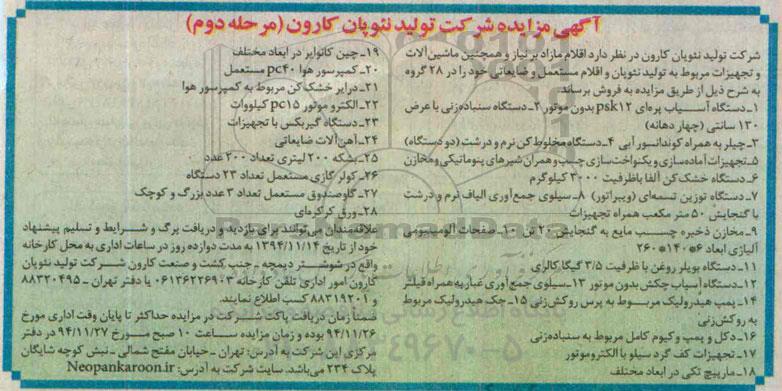 آگهی مزایده شرکت تولید نئوپان کارون (مرحله دوم)
شرکت تولید نئوپان کارون در نظر دارد اقلام مازاد بر نیاز و همچنین ماشین‌آلات
و تجهیزات مربوط به تولید نئوپان و اقلام مستعمل و ضایعاتی خود را در ۲۸ گروه
به شرح ذیل از طریق مزایده به فروش برساند
۱ـ دستگاه آسیاب پره‌ای psk۱۲ بدون موتور ۲ـ دستگاه سنباده‌زنی با عرض
۱۳۰ سانتی (چهار دهانه)
۳ـ چیلر به همراه کوندانسور آبی ۴ـ دستگاه مخلوط کن نرم و درشت (دو دستگاه)
۵ـ تجهیزات آماده‌سازی و یکنواخت‌سازی چسب و همران شیرهای پنوماتیکی و مخازن
۶ـ دستگاه خشک کن آلفا باظرفیت ۳۰۰۰ کیلوگرم
۷ـ دستگاه توزین تسمه‌ای (ویبراتور) ۸ـ سیلوی جمع‌آوری الیاف نرم و درشت
با گنجایش ۵۰ متر مکعب همراه تجهیزات
۹ـ مخازن ذخیره چسب مایع به گنجایش ۲۰ تن ۱۰ـ صفحات آلومینیومی
آلیاژی ابعاد ۶*۱۴۰*۲۶۰
۱۱ـ دستگاه بویلر روغن با ظرفیت ۳/۵ گیگا کالری
۱۲ـ دستگاه آسیاب چکش بدون موتور ۱۳ـ سیلوی جمع آوری غبار به همراه فیلتر
۱۴ـ پمپ هیدرولیک مربوط به پرس روکش‌زنی ۱۵ـ جک هیدرولیک مربوط
به روکش‌زنی
۱۶ـ دکل و پمپ وکیوم کامل مربوط به سنباده‌زنی
۱۷ـ تجهیزات کف گرد سیلو با الکتروموتور
۱۸ـ مارپیچ تکی در ابعاد مختلف
۱۹ـ چین کانوایر در ابعاد مختلف
۲۰ـ کمپرسور هوا pc۴۰ مستعمل
۲۱ـ درایر خشک کن مربوط به کمپرسور هوا
۲۲ـ الکترو موتور pc۱۵ کیلووات
۲۳ـ دستگاه گیربکس با تجهیزات
۲۴ـ آهن‌آلات ضایعاتی
۲۵ـ بشکه ۲۰۰ لیتری تعداد ۲۰۰ عدد
۲۶ـ کولر گازی مستعمل تعداد ۲۳ دستگاه
۲۷ـ گاوصندوق مستعمل تعداد ۳ عدد بزرگ و کوچک
۲۸ـ ورق کرکره‌ای
علاقه‌مندان می‌توانند برای بازدید و دریافت برگ و شرایط و تسلیم پیشنهاد
خود از تاریخ ۱۳۹۴/۱۱/۱۴ به مدت دوازده روز در ساعات اداری به محل کارخانه
واقع در شوشتر دیمچه ـ جنب کشت و صنعت کارون شرکت تولید نئوپان
کارون امور اداری تلفن کارخانه ۰۶۱۳۶۲۲۶۹۰۳ یا دفتر تهران ـ ۸۸۳۲۰۴۹۵
و ۸۸۳۱۹۲۰۱ کسب اطلاع نمایند.
ضمناً زمان دریافت پاکت شرکت در مزایده حداکثر تا پایان وقت اداری مورخ
۹۴/۱۱/۲۶ بوده و زمان مزایده ساعت ۱۰ صبح مورخ ۹۴/۱۱/۲۷ در دفتر
مرکزی این شرکت به آدرس: تهران ـ خیابان مفتح شمالی ـ نبش کوچه شایگان
پلاک ۲۳۴ می‌باشد. سایت شرکت به آدرس: Neopankaroon.ir